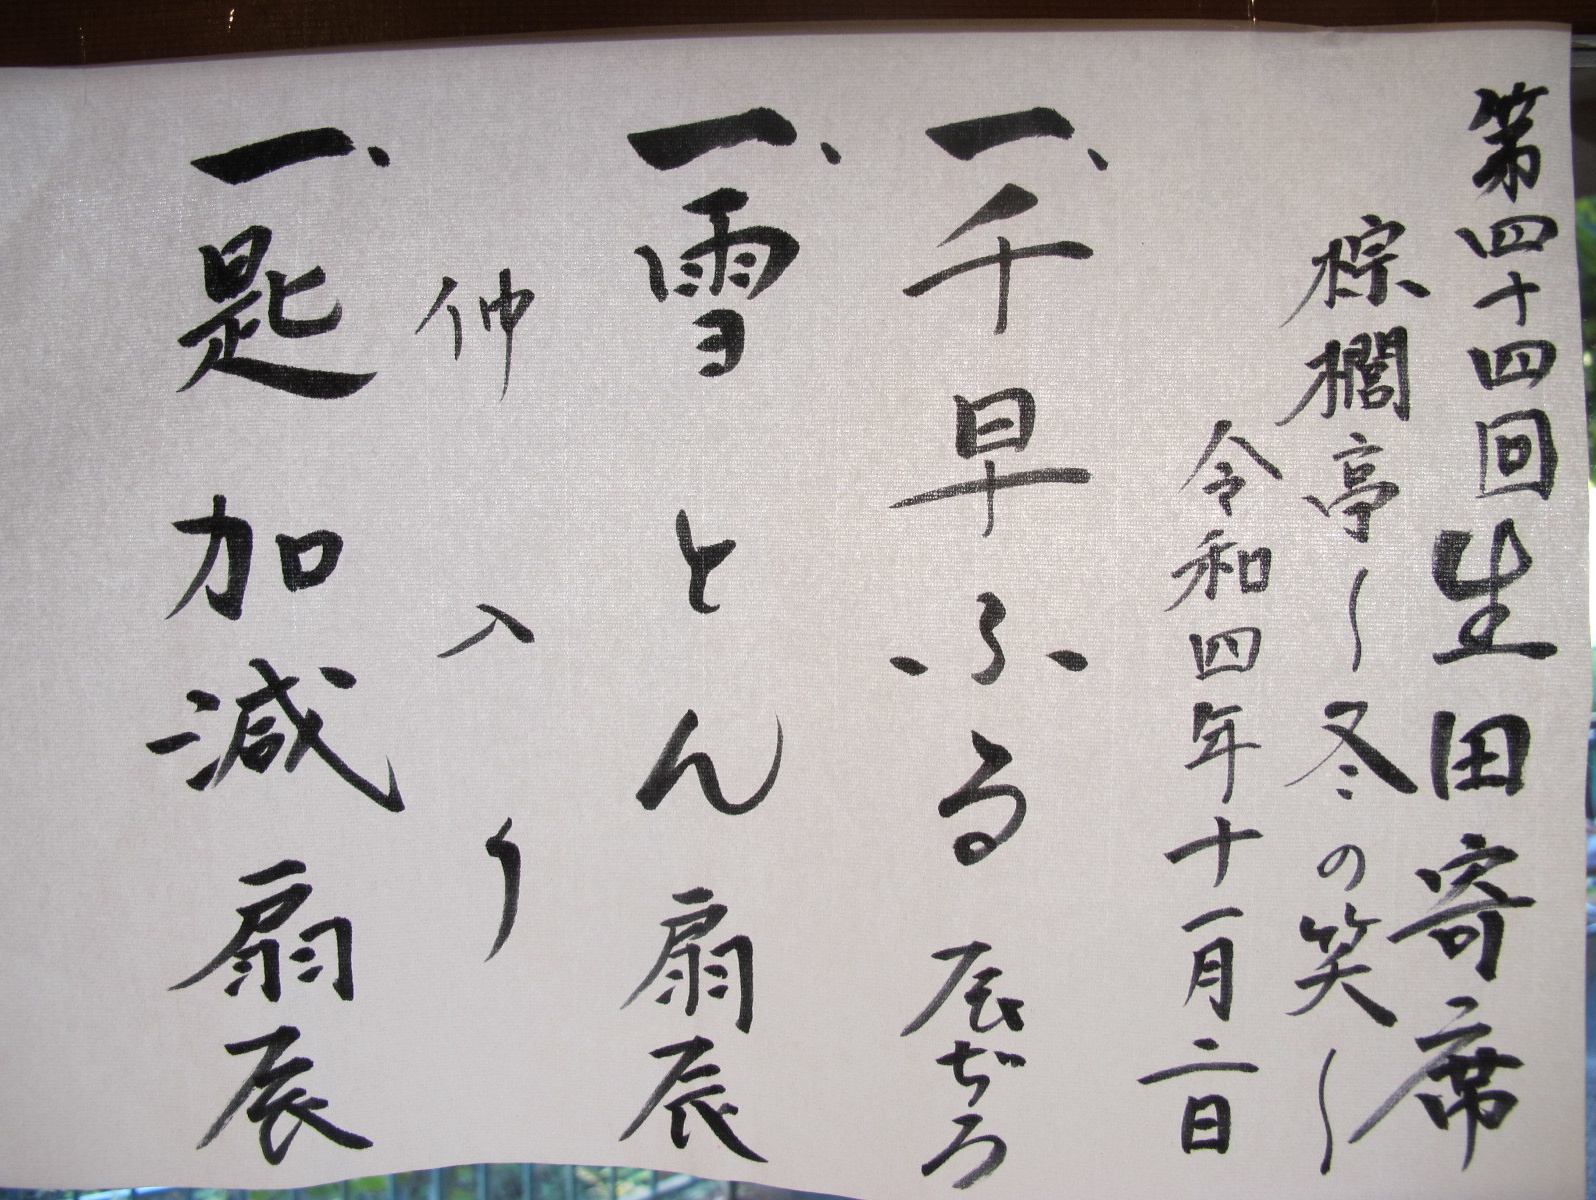 第四十四回生田寄席
棕櫚亭〜冬の笑〜
令和四年十一月二日
一、千早ふる 辰ぢろ
一、雪とん 扇辰
仲入り
一、匙加減 扇辰